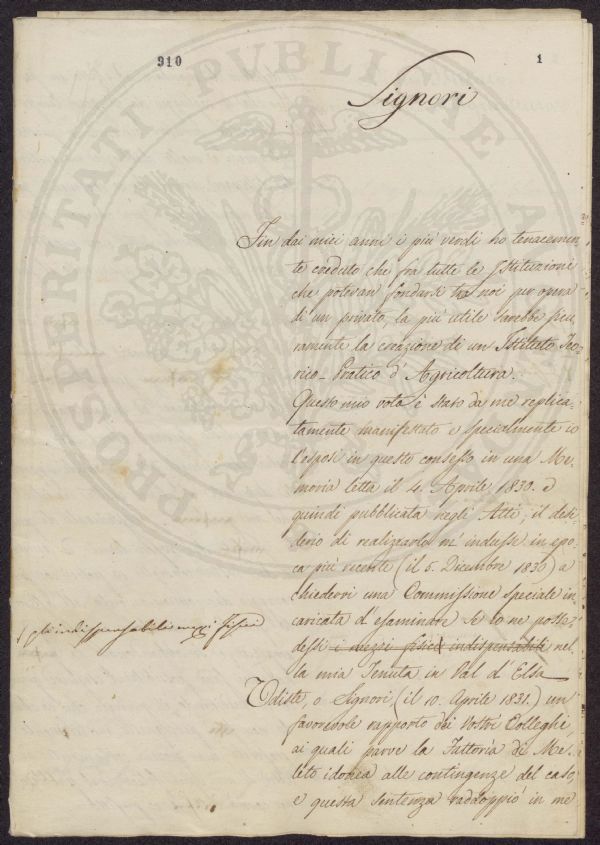 910
1
Signori
Fin dai miei anni i più verdi ho tenacemen-
te creduto che frà tutte le Istituzioni
che potevan fondarsi tra noi per opera
di un privato, la più utile sarebbe sicu-
ramente la creazione di un Istituto Teo-
rico-Pratico d'Agricoltura.
Questo mio voto è stato da me replica-
tamente manifestato e specialmente io
l'esposi in questo consesso in una Me-
moria letta il 4. Aprile 1830. e
quindi pubblicata negli Atti; il desi-
derio di realizzarlo m'indusse in epo-
ca più recente (il 5. Dicembre 1830) a
chiedervi una Commissione speciale in-
caricata d'esaminare se io ne posse-
gl'indispensabili mezzi fisici
dessi i mezzi fisici indispensabili nel-
la mia Tenuta in Val d'Elsa
Udiste, o Signori, (il 10. Aprile 1831.) un
favorevole rapporto dei Vostri Colleghi,
ai quali parve la Fattoria di Me-
leto idonea alle contingenze del caso,
e questa sentenza raddoppiò in me
PROSPERITATI PVBLICAE